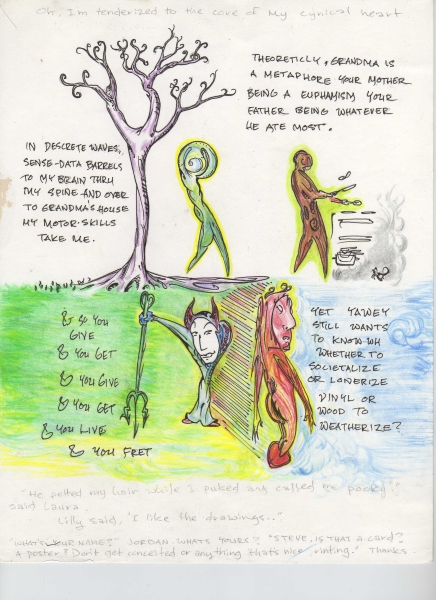 Oh, I'm tenderized to the core of my cynical heart
THEORETICLLY, GRANDMA IS
A METAPHORE YOUR MOTHER
BEING A EUPHAMISM YOUR
FATHER BEING WHATEVER
HE ATE MOST.
IN DESCRETE WAVES,
SENSE-DATA BARRELS
TO MY BRAIN THRU
MY SPINE AND OVER
TO GRANDMA'S HOUSE
MY MOTOR-SKILLS
TAKE ME.
& SO YOU
GIVE
& YOU GET
& YOU GIVE
& YOU GET
& YOU LIVE
& YOU FRET
YET YAWEY
STILL WANTS
TO KNOW WH
WHETHER TO
SOCIETALIZE
OR LONERIZE
VINYL OR
WOOD TO
WEATHERIZE?
"He petted my hair while I puked and called me pooky."
said Laura.
Lilly said, "I like the drawings.."
"WHAT'S YOUR NAME?" JORDAN. WHAT'S YOURS? "STEVE, IS THAT A CARD?
A poster? Don't get conceited or anything that's nice printing." Thanks.